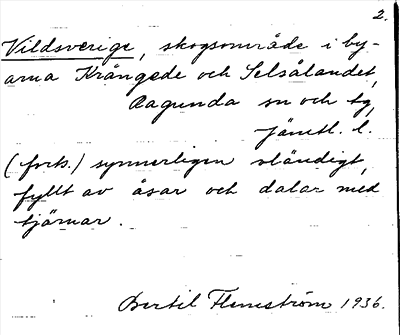 2.
Vildsverige, skogsområde i by-
arna Krångede och Selsålandet,
Ragunda sn och tg,
Jämtl. l.
(forts.) synnerligen oländigt,
fyllt av åsar och dalar med
tjärnar.
Bertil Flemström 1936.